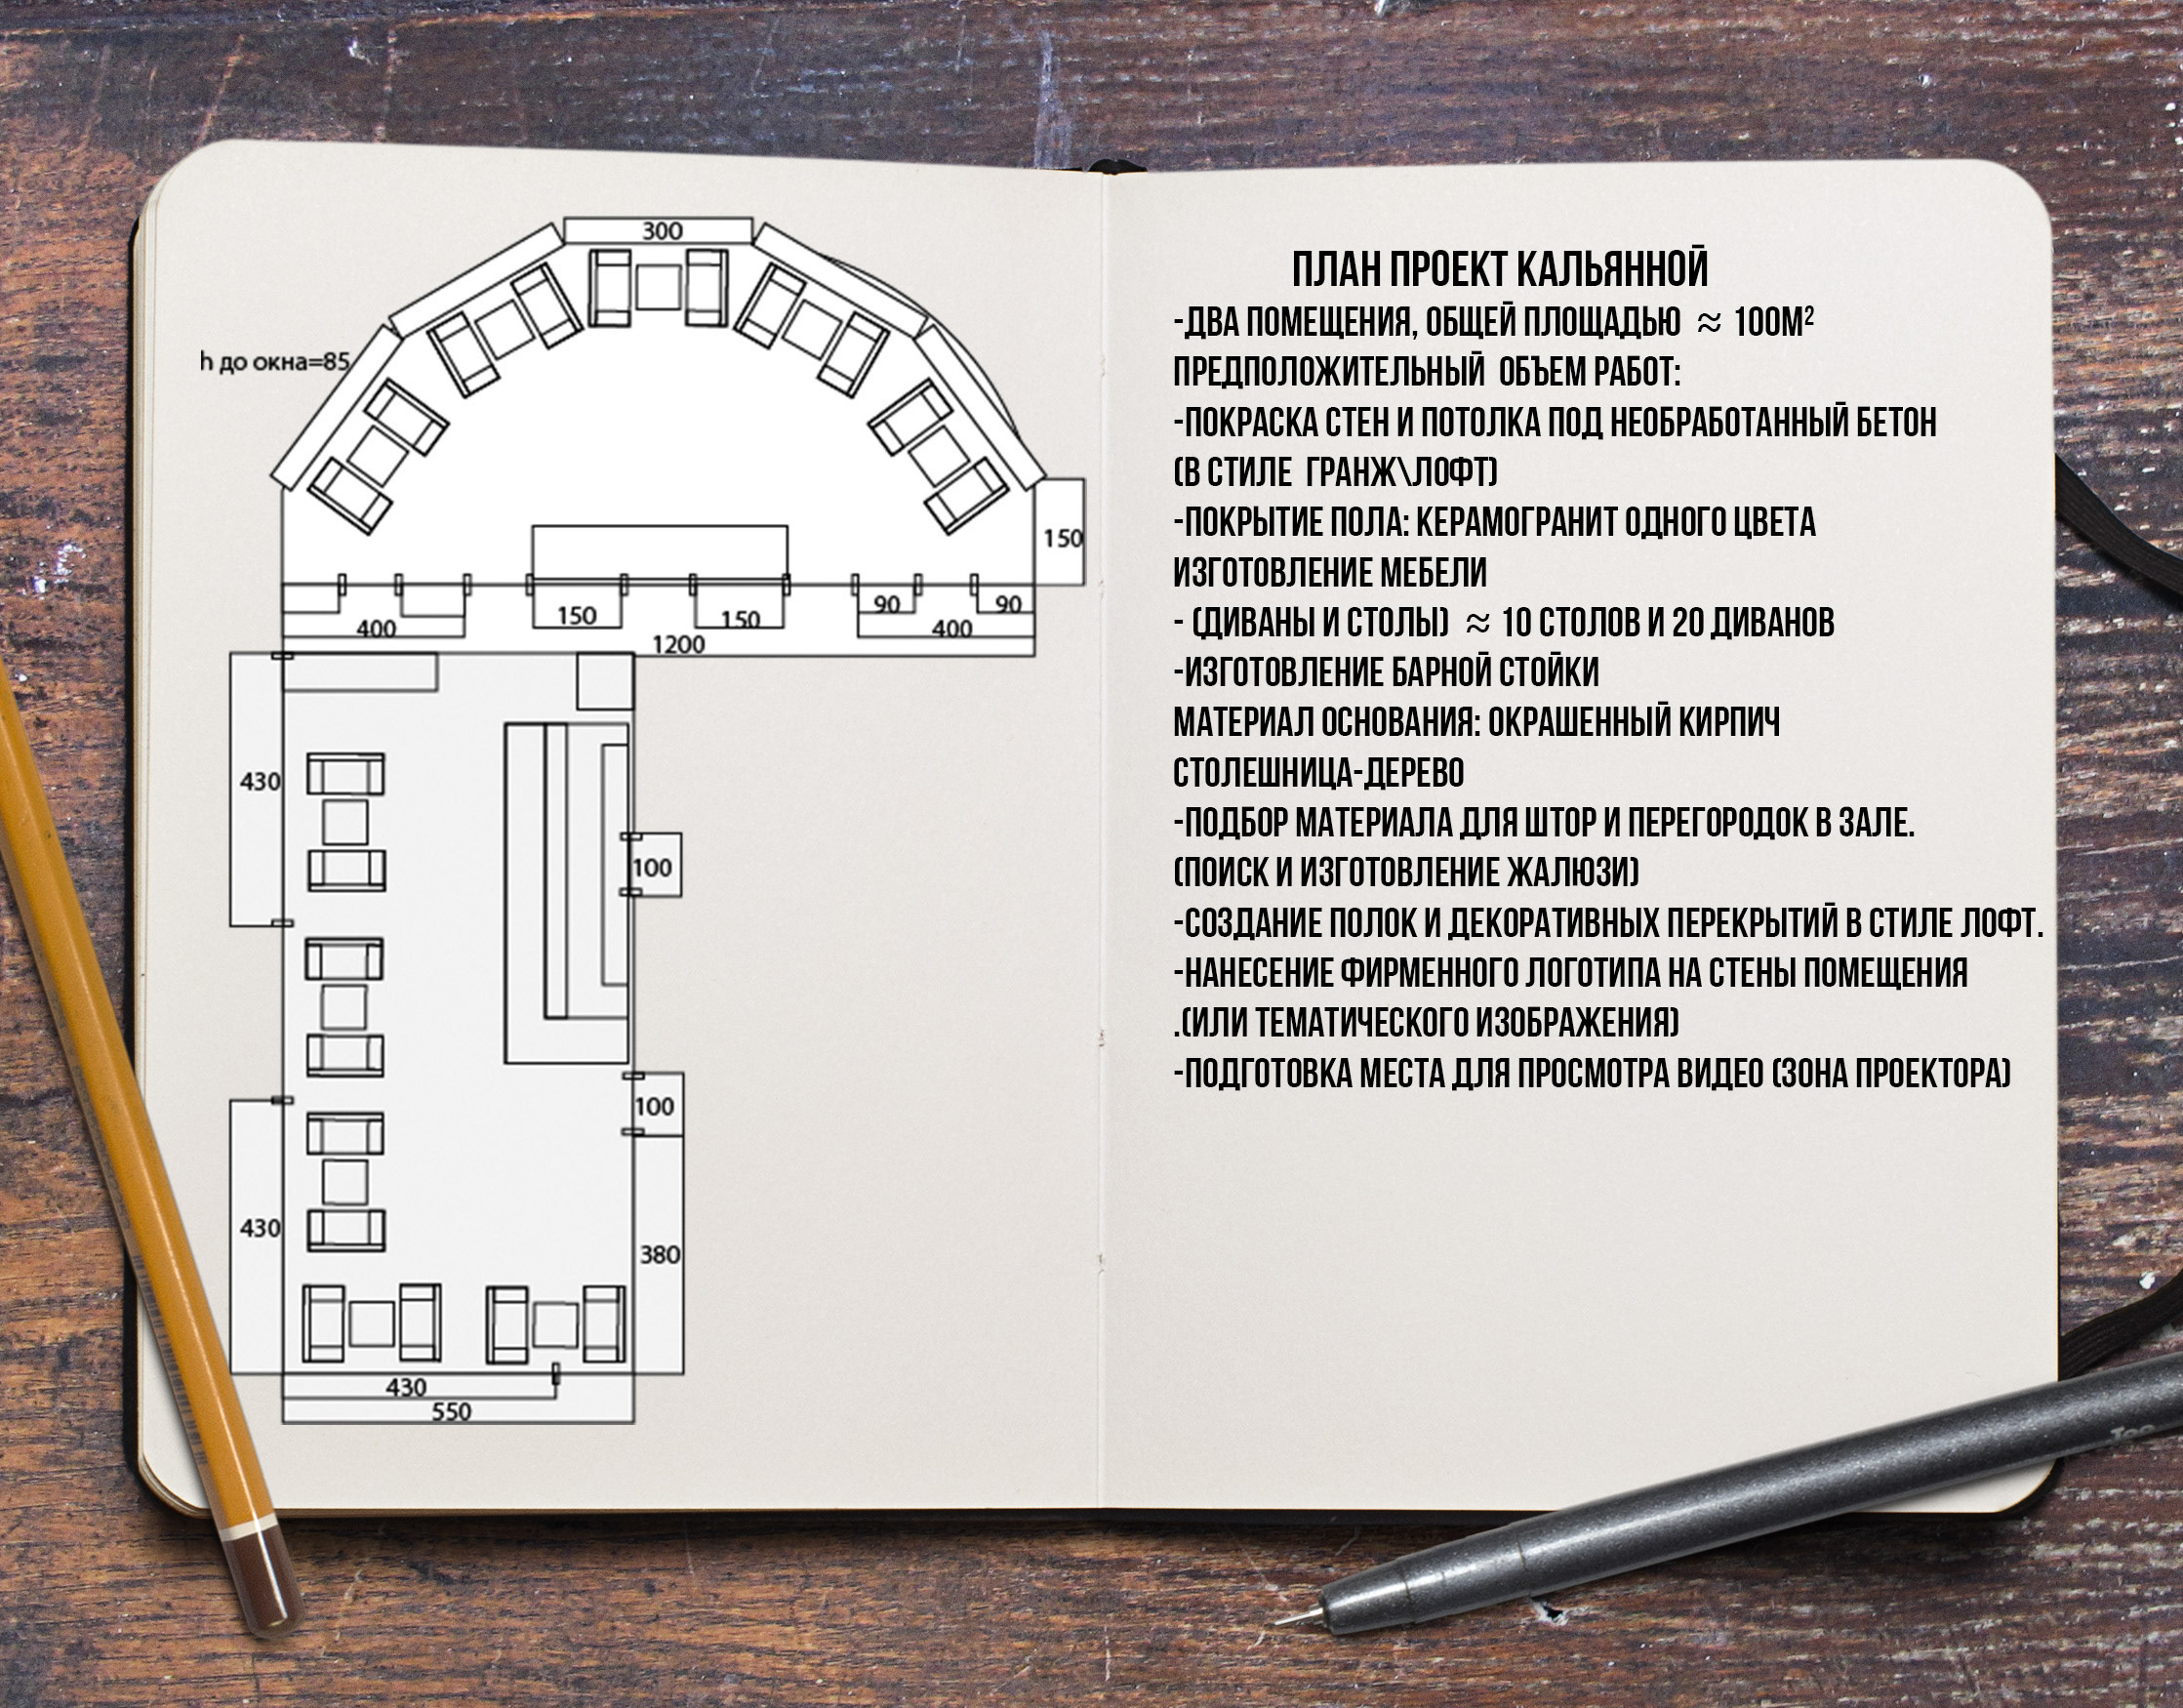 300
h до окна=85
150
90
90
150
150
400
400
1200
430
100
100
430
380
430
550
ПЛАН ПРОЕКТ КАЛЬЯННОЙ
-ДВА ПОМЕЩЕНИЯ, ОБЩЕЙ ПЛОЩАДЬЮ ≈ 100М²
ПРЕДПОЛОЖИТЕЛЬНЫЙ ОБЪЕМ РАБОТ:
-ПОКРАСКА СТЕН И ПОТОЛКА ПОД НЕОБРАБОТАННЫЙ БЕТОН
(В СТИЛЕ ГРАНЖ\ЛОФТ)
-ПОКРЫТИЕ ПОЛА: КЕРАМОГРАНИТ ОДНОГО ЦВЕТА
ИЗГОТОВЛЕНИЕ МЕБЕЛИ
- (ДИВАНЫ И СТОЛЫ) ≈ 10 СТОЛОВ И 20 ДИВАНОВ
-ИЗГОТОВЛЕНИЕ БАРНОЙ СТОЙКИ
МАТЕРИАЛ ОСНОВАНИЯ: ОКРАШЕННЫЙ КИРПИЧ
СТОЛЕШНИЦА-ДЕРЕВО
-ПОДБОР МАТЕРИАЛА ДЛЯ ШТОР И ПЕРЕГОРОДОК В ЗАЛЕ.
(ПОИСК И ИЗГОТОВЛЕНИЕ ЖАЛЮЗИ)
-СОЗДАНИЕ ПОЛОК И ДЕКОРАТИВНЫХ ПЕРЕКРЫТИЙ В СТИЛЕ ЛОФТ.
-НАНЕСЕНИЕ ФИРМЕННОГО ЛОГОТИПА НА СТЕНЫ ПОМЕЩЕНИЯ
.(ИЛИ ТЕМАТИЧЕСКОГО ИЗОБРАЖЕНИЯ)
-ПОДГОТОВКА МЕСТА ДЛЯ ПРОСМОТРА ВИДЕО (ЗОНА ПРОЕКТОРА)